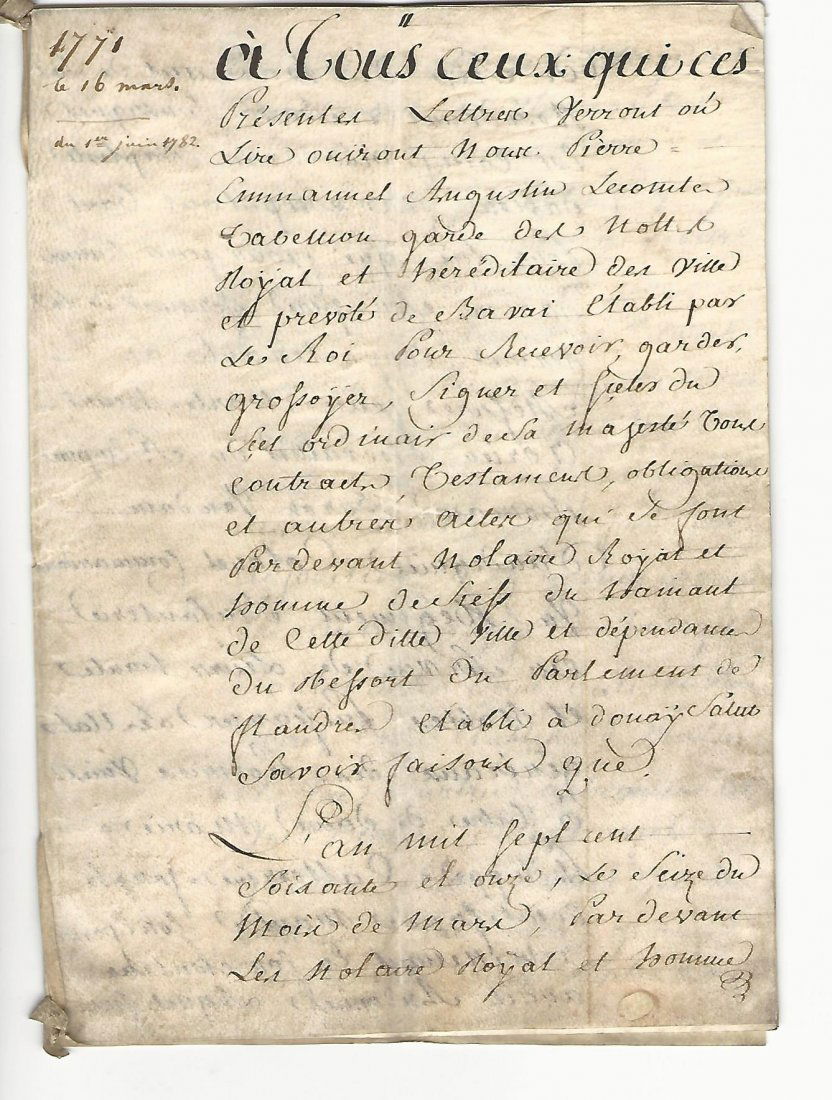 1771
le 16 mars.
du 1er juin 1782.
à Tous ceux qui ces
Présentes Lettres Verront où
Lire ouiront Nous Pierre =
Emmanuel Augustin Lecomte
Tabellion garde des Nottes
Royal et héréditaire des Ville
et prevôté de Bavai Etabli par
Le Roi Pour Recevoir, garder,
grossoÿer, Signer et scéeler du
Scel ordinair de Sa majesté Tous
Contracts, Testament, obligations
et autres Actes qui se font
Pardevant Notaire Royal et
homme de fiefs du hainaut
de Cette ditte Ville et dépendance
du Ressort du Parlement de
flandres etabli à douaÿ Salut
Savoir faisons que.
L'an mil sept cent
Soixante et onze, Le Seize du
Mois de Mars, Par devant
Les Notaire Royal et homme